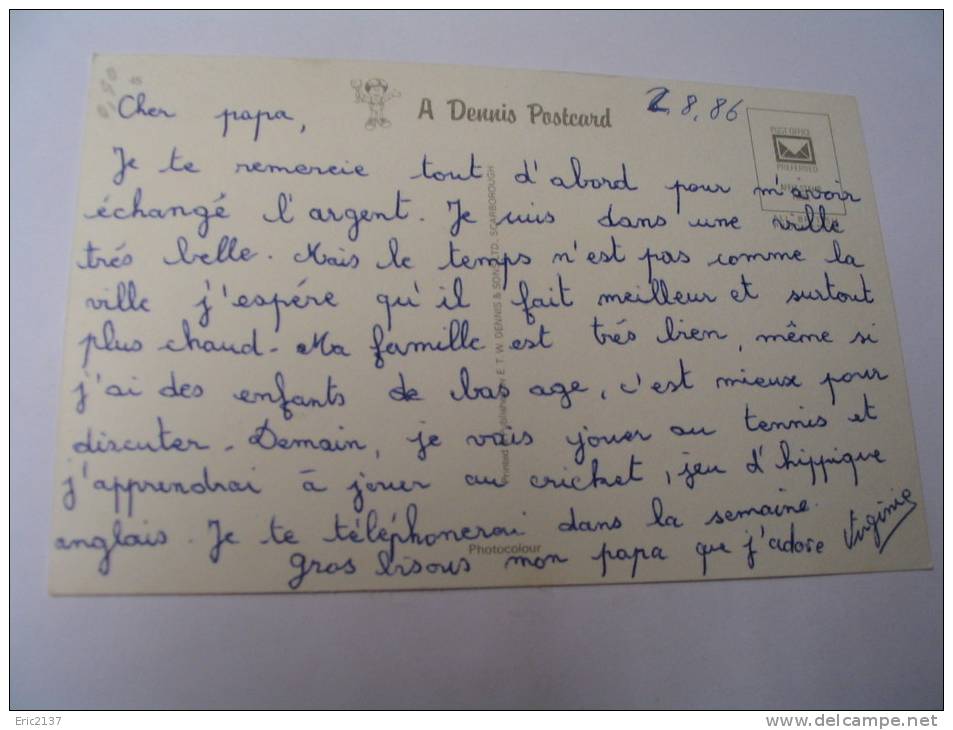 A Dennis Postcard
2.8.86
Cher papa,
POST OFFICE
PREFERRED
Je te remercie tout d'abord pour m'avoir
échangé l'argent. Je suis dans une ville
trés belle. Mais le temps n'est pas comme la
ville j'espére qu'il fait meilleur et surtout
plus chaud. Ma famille est trés bien, même si
j'ai des enfants de bas age, c'est mieux pour
discuter. Demain, je vais jouer au tennis et
j'apprendrai à jouer au cricket, jeu d'hippique
anglais. Je te téléphonerai dans la semaine.
Gros bisous mon papa que j'adore Virginie
E.T.W. DENNIS & SONS LTD., SCARBOROUGH
Photocolour
Eric2137
www.delcampe.net